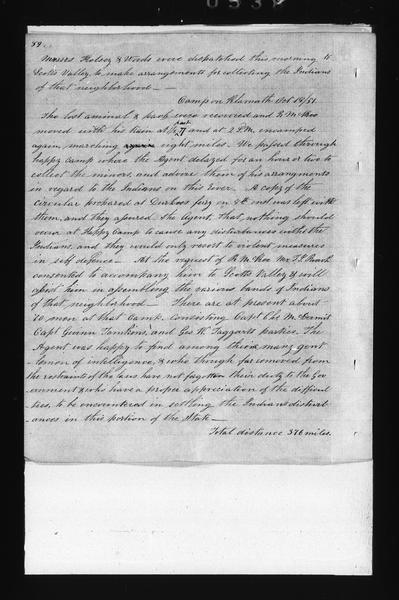 59.
Messrs Kelsey & Woods were dispatched this morning to
Scotts Valley, to make arrangements for collecting the Indians
of that neighborhood —
Camp on Klamath Oct 19/51.
The lost animal & pack were recovered and R. McKee
moved with his train at ½ past 7 and at 2 P.M. encamped
again, marching eight miles. We passed through
happy camp where the Agent delayed for an hour or two to
collect the miners, and advise them of his arrangements
in regard to the Indians on this river. A copy of the
circular prepared at Durkees ferry on 9th inst was left with
them, and they assured the Agent, that, nothing should
occur at Happy Camp to cause any disturbances with the
Indians, and they would only resort to violent measures
in self defence. At the request of R. McKee Mr T. J. Roach
consented to accompany him to Scotts Valley & will
assist him in assembling the various bands of Indians
of that neighborhood — There are at present about
70 men at that Camp. consisting Capt Col McDermit
Capt Gwinn Tompkins, and Geo W. Taggarts parties. The
Agent was happy to find among them many gent
lemen of intelligence, & who though far removed from
the restraints of the laws have not forgotten their duty to the Gov
ernment & who have a proper appreciation of the difficul
ties, to be encountered in settling the Indian disturb
ances in this portion of the State —
Total distance 376 miles.